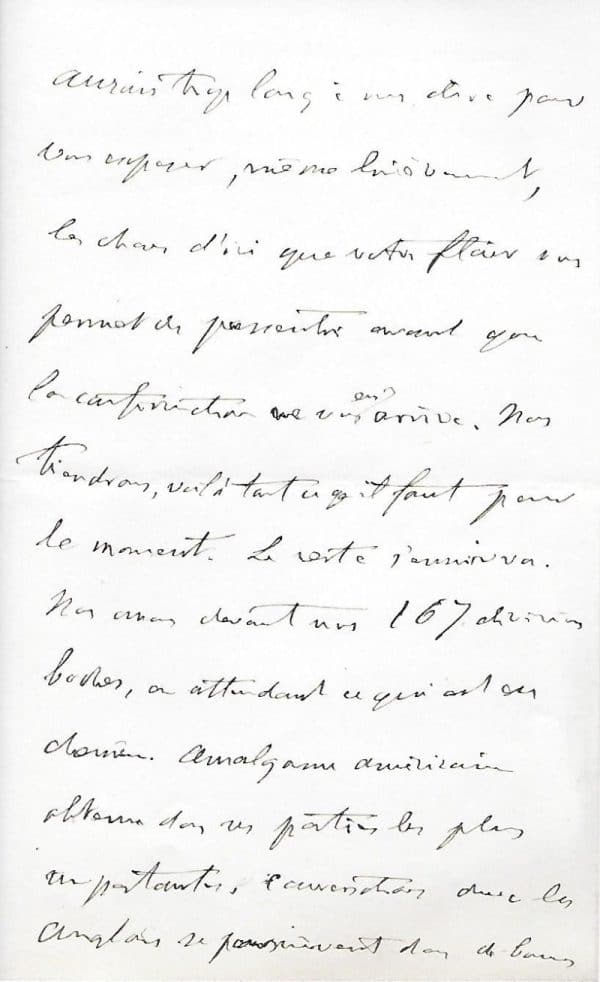 aurais trop long à vous dire pour
vous exposer, même brièvement,
les choses d'ici que votre flair vous
permet de pressentir avant que
la confirmation ne vous en arrive. Nous
tiendrons, voilà tout ce qu'il faut pour
le moment. Le reste s'ensuivra.
Nous avons devant nous 167 divisions
boches, en attendant ce qui est en
chemin. Amalgame américain
obtenu dans ses parties les plus
importantes, conversations avec les
Anglais se poursuivent dans de bonnes